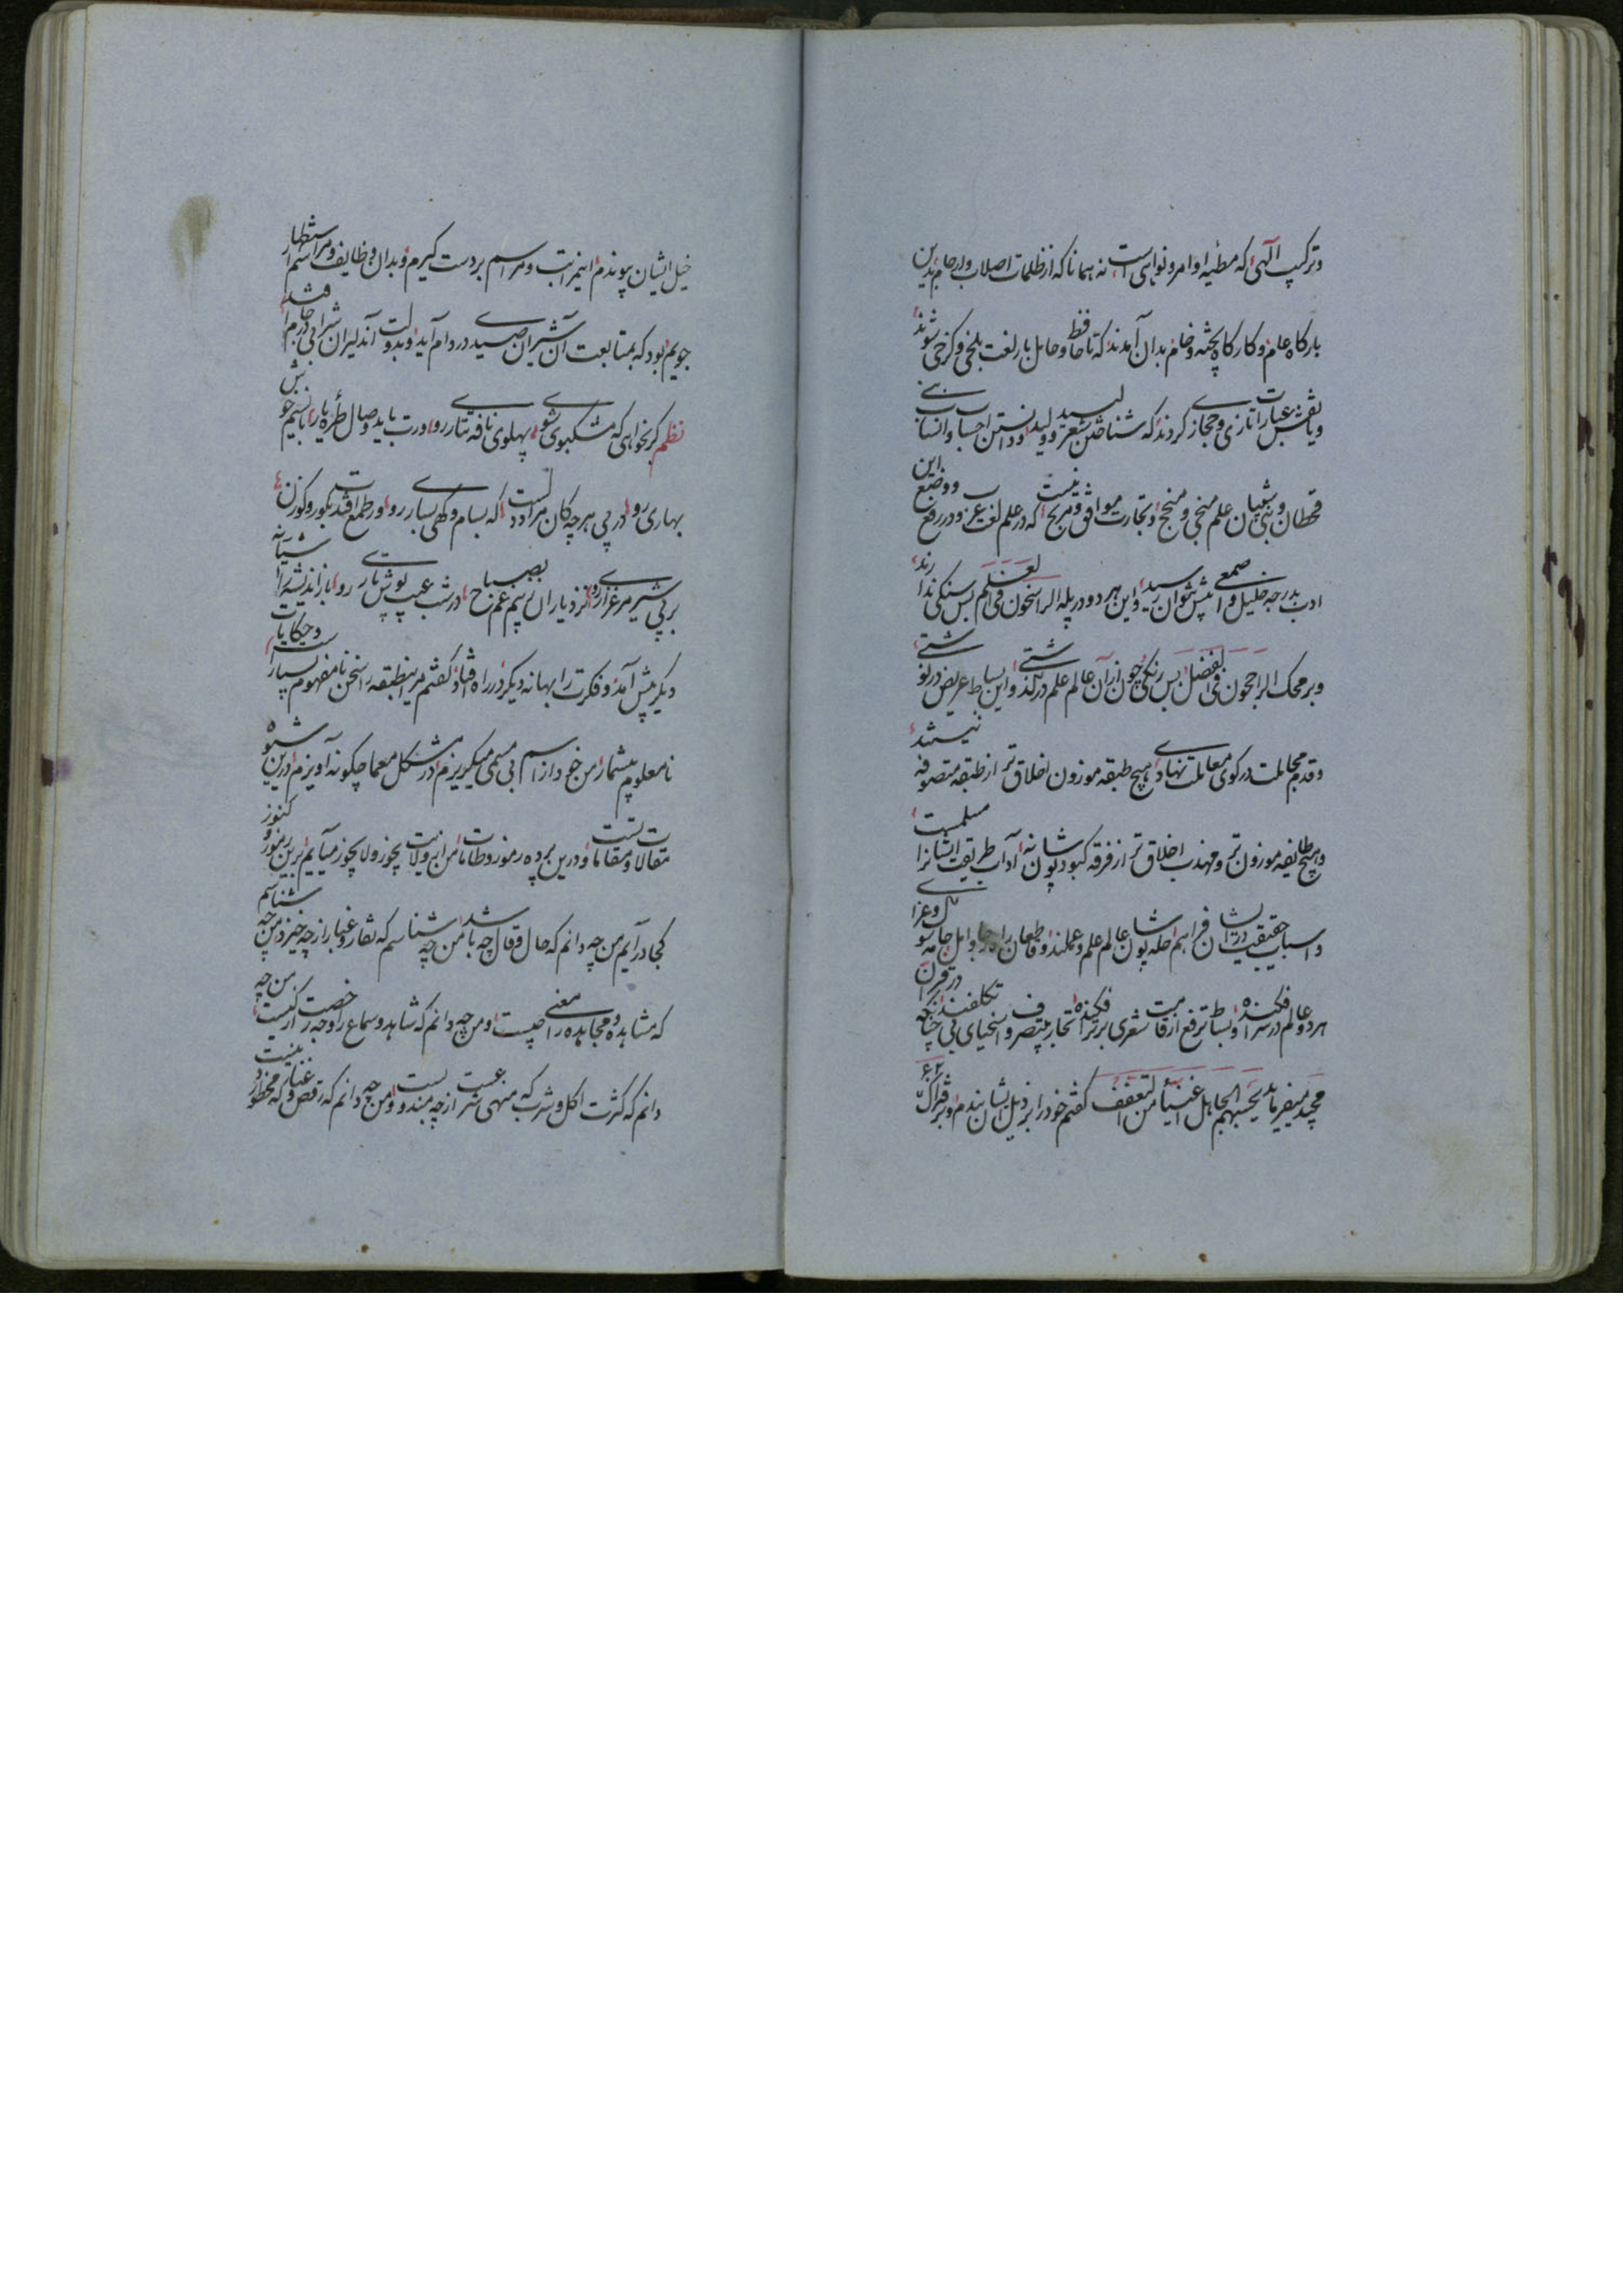 وترکیب آلهی که مطیه اوامر و نواهی است نه همانا که از ظلمات اصلاب و ارحام بدین
بارکاه عام و کارکاه پخته و خام بدان آمدند که تا حافظ و حامل بار لغت بلخی و کرخی شوند
ویا نقش عبارات تازی و حجاز کردند که شناختن شعر لبید و ولید و دانستن احساب و انساب بنی
قحطان و بنی شیبان علم منجی و منجح و تجارت موافق و مربح نیست که در علم لغت عرب و در رفع و وضع این
ادب بدرجه خلیل و اصمعی پیش نتوان رسید و این هر دو در پله الراسخون فی العلم بس سنکی ندارند
و بر محک الراجحون فی الفضل بس رنکی چون ازان عالم علم در کذشتی و این بساط عریض در نوشتی
و قدم مجاملت در کوی معاملت نهادی هیچ طبقه موزون اخلاق تر از طبقه متصوفه نیستند
و هیچ طایفه موزون تر و مهذب اخلاق تر از فرقه کبود پوشان نه آداب طریقت ایشانرا مسلمست
و اسباب حقیقت در ایشان فراهم حله پوشان عالم علم و عملند و قاطعان راه و امل جامه سوک و عزا
هر دو عالم در سر افکنده و بساط ترفع از قامت شعری برتر افکنده تجار بی تصرف و اسخیای بی تکلفند چنانکه در قرآن
مجید میفرماید یحسبهم الجاهل اغنیاء من التعفف کفتم خود را بر ذیل ایشان بندم و بر فتراک
خیل ایشان پیوندم این مراتب و مراسم بر دست کیرم و بدان وظایف و مراسم استظهار
جویم بود که بمتابعت آن شیران صیدی در دام آید و بدولت آن دلیران شرابی در جام افتد
نظم کر نخواهی که مشکبوی شوی پهلوی نافه تتاری رو ورت باید وصال طره یار با نسیم خوش
بهاری رو در پی هر چه کان مراد دلست که بسام و کهی بساری رو ور طمع افتدت بکور و کوزن
بر پی شیر مرغزاری رو نزد یاران رسیم غم بصباح در شب عیب پوش تاری رو باز اندیشه را شبانه
دیکر پیش آمد و فکرت را بهانه دیکر در راه افتاد کفتم مر این طبقه را سخن نامفهوم بسیار است و حکایات
نامعلوم بیشمار من خود از اسم بی مسمی میکریزم در مشکل معما چکونه آویزم در این شیوه
مقالات و مقاماتست و درین پرده رموز و طامات من از ولایت یجوز و لا یجوز میآیم برین رموز و کنوز
کجا در آیم من چه دانم که حال و قال چه باشد من چه شناسم که نقار و غبار از چه خیزد من چه شناسم
که مشاهده و مجاهده را معنی چیست و من چه دانم که شاهد و سماع را وجه رخصت از کیست من چه
دانم که کثرت اکل و شرب که منهی شرعست از چه بسندد و من چه دانم که رقص و غنا که محظور دینیست